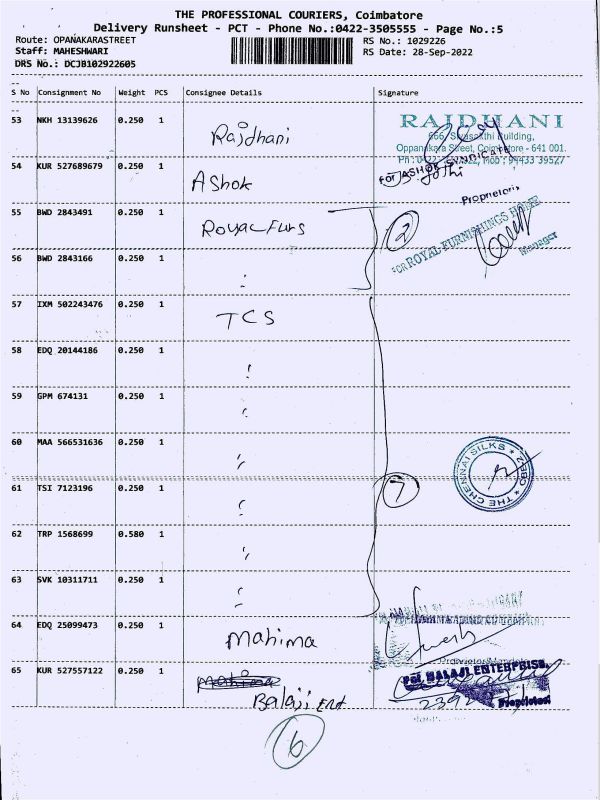 THE PROFESSIONAL COURIERS, Coimbatore
Delivery Runsheet - PCT - Phone No.:0422-3505555 - Page No.:5
Route: OPANAKARASTREET
RS No.: 1029226
Staff: MAHESHWARI
RS Date: 28-Sep-2022
DRS No.: DCJB102922605
S No Consignment No Weight PCS Consignee Details Signature
53 NKH 13139626 0.250 1 Rajdhani
RAJDHANI
666, Sivasakthi Building,
Oppanakara Street, Coimbatore - 641 001.
Mob : 94433 39527
54 KUR 527689679 0.250 1 Ashok
For ASHOK SYNDICATE
Jothi
Proprietor
55 BWD 2843491 0.250 1 Royal Furs
2
For ROYAL FURNISHINGS HOME
Manager
56 BWD 2843166 0.250 1 "
57 IXM 502243476 0.250 1 TCS
58 EDQ 20144186 0.250 1 "
59 GPM 674131 0.250 1 "
60 MAA 566531636 0.250 1 "
THE CHENNAI SILKS
61 TSI 7123196 0.250 1 "
7
62 TRP 1568699 0.580 1 "
63 SVK 10311711 0.250 1 "
64 EDQ 25099473 0.250 1 Mahima
65 KUR 527557122 0.250 1 Mahima
Balaji Ent
For BALAJI ENTERPRISE,
Proprietor
6